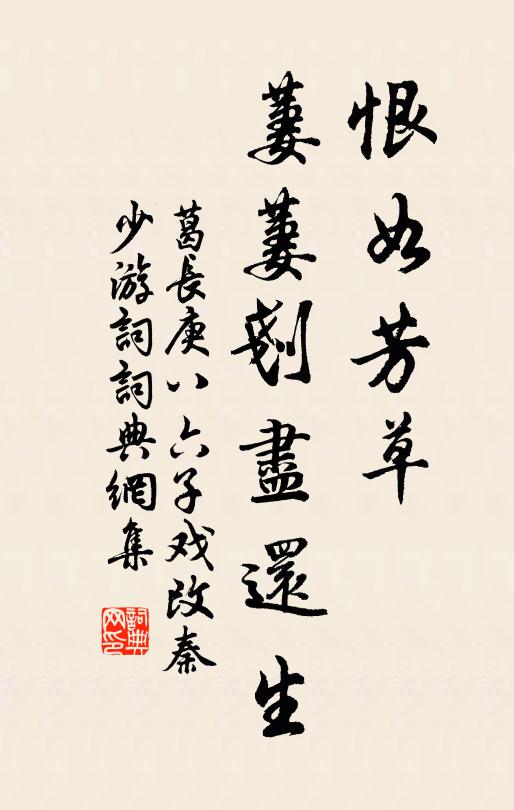 恨如芳草
萋萋剗盡還生
葛長庚八六子戏改秦
少游詞詞典網集
詞典网印